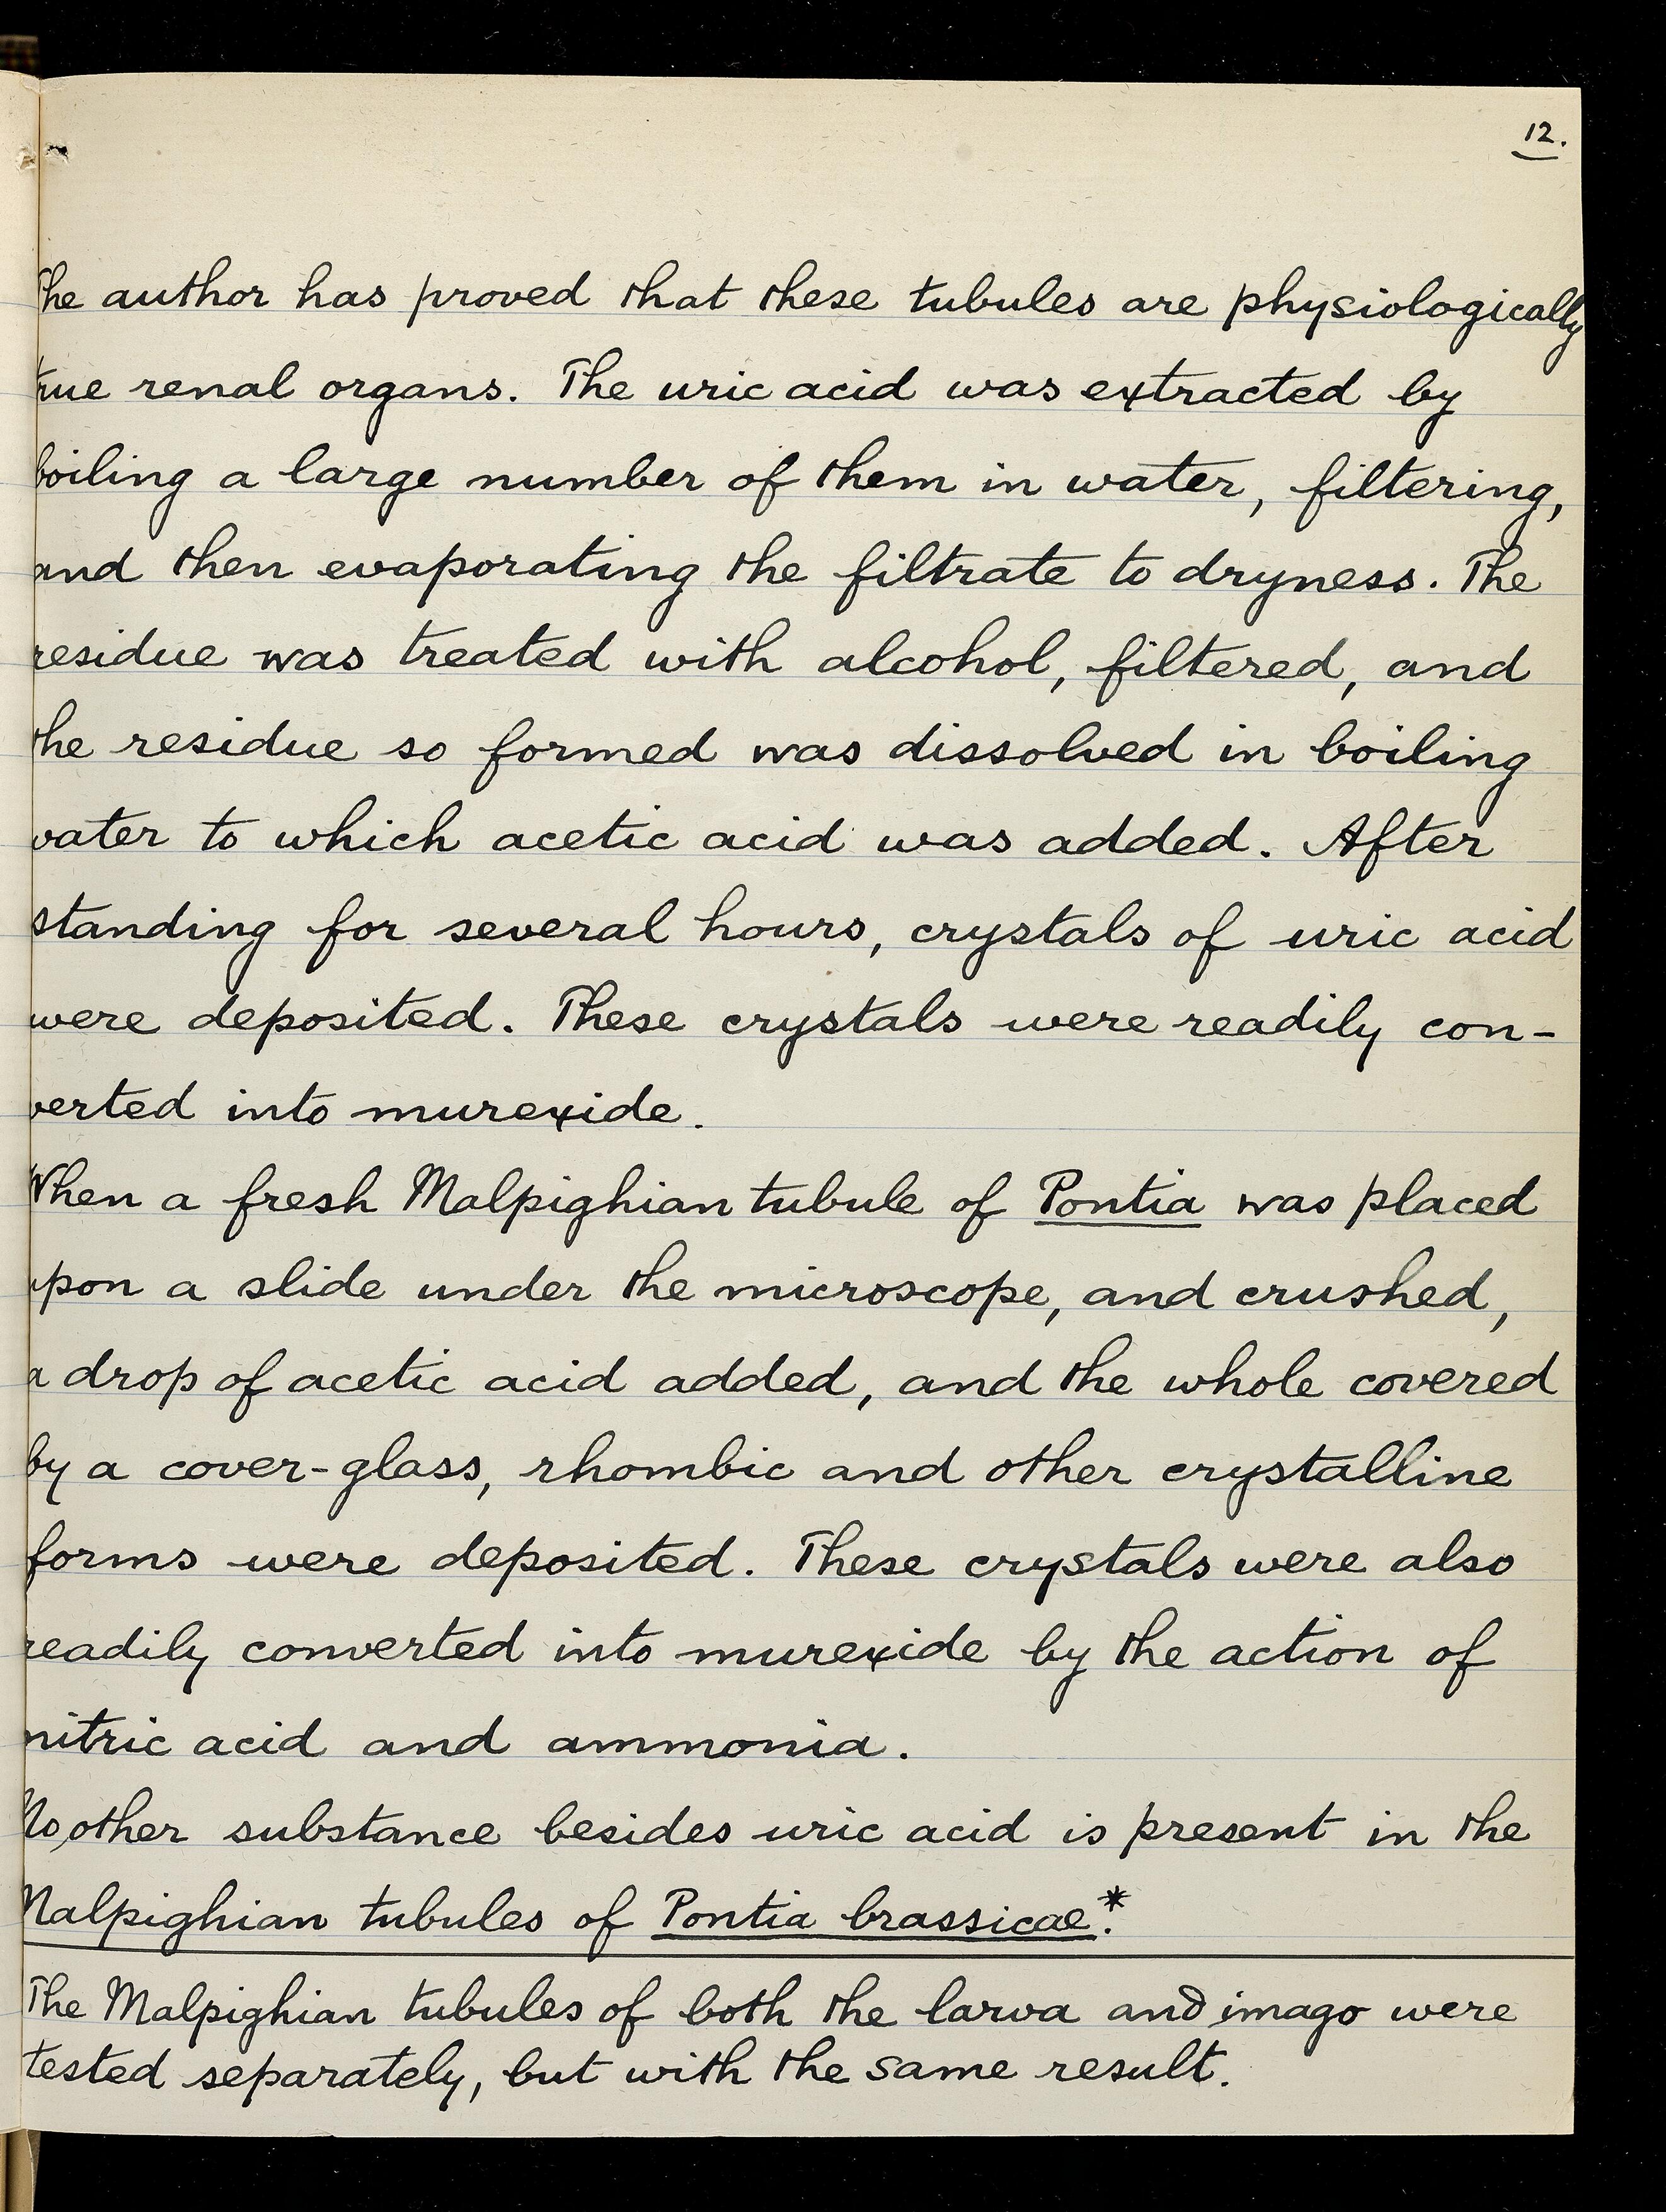 12.
The author has proved that these tubules are physiologically
true renal organs. The uric acid was extracted by
boiling a large number of them in water, filtering,
and then evaporating the filtrate to dryness. The
residue was treated with alcohol, filtered, and
the residue so formed was dissolved in boiling
water to which acetic acid was added. After
standing for several hours, crystals of uric acid
were deposited. These crystals were readily con-
verted into murexide.
When a fresh Malpighian tubule of Pontia was placed
upon a slide under the microscope, and crushed,
a drop of acetic acid added, and the whole covered
by a cover-glass, rhombic and other crystalline
forms were deposited. These crystals were also
readily converted into murexide by the action of
nitric acid and ammonia.
No other substance besides uric acid is present in the
Malpighian tubules of Pontia brassicae.*
The Malpighian tubules of both the larva and imago were
tested separately, but with the same result.